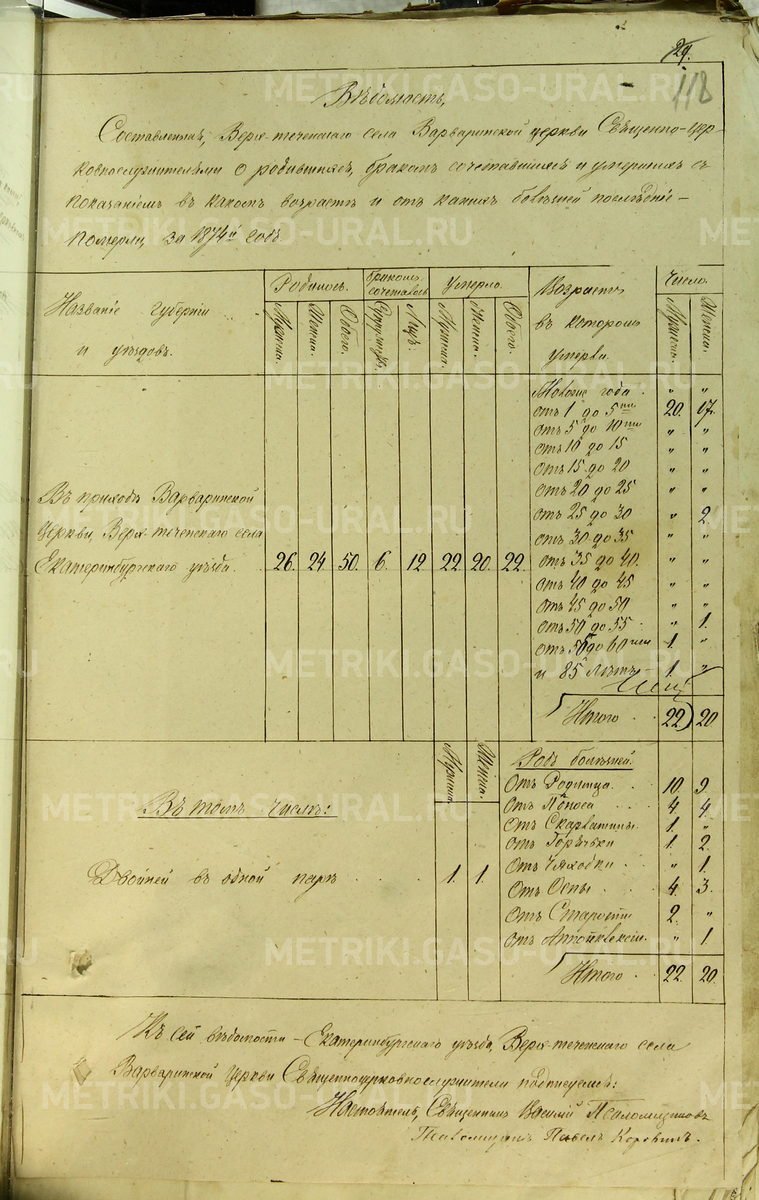 29.
118
Вѣдомость,
Составленная, Верх-теченскаго села Варваринской церкви Священно-цер-
ковнослужителями о родившихся, бракомъ сочетавшихся и умершихъ съ
показаніемъ въ какомъ возрастѣ и отъ какихъ болѣзней послѣдніе
померли, за 1874й годъ
Названіе губерніи и уѣздовъ.
Родилось.
Мужска.
Женска.
Обоего.
Бракомъ сочеталось
Супружествъ.
Лицъ.
Умерло.
Мужска.
Женска.
Обоего.
Возрастъ въ которомъ умерли.
Число.
Мужеска.
Женска.
Въ приходѣ Варваринской
Церкви, Верх-теченскаго села
Екатеринбургскаго уѣзда. 26. 24 50. 6. 12 22 20. 22
Моложе года . " "
отъ 1 до 5ти 20. 17.
отъ 5 до 10ти " "
отъ 10 до 15 " "
отъ 15 до 20 " "
отъ 20 до 25 " "
отъ 25 до 30 " 2.
отъ 30 до 35 " "
отъ 35 до 40. " "
отъ 40 до 45 " "
отъ 45 до 50 " "
отъ 50 до 55 . " 1.
отъ 55 до 60ти 1. "
и 85 лѣтъ 1. "
Итого . . 22 20
Въ томъ числѣ:
Мужска.
Женска.
Двойней въ одной парѣ . . . 1. 1.
Родъ болѣзней.
Отъ Родимца . . 10. 9
Отъ Поноса . . 4 4.
Отъ Скарлатины. 1. "
Отъ Горячки . 1. 2.
Отъ Чахотки . . " 1.
Отъ Оспы . . 4. 3.
Отъ Старости 2. "
Отъ Апоплексіи. " 1
Итого . . 22. 20.
Къ сей вѣдомости Екатеринбургскаго уѣзда, Верх-теченскаго села
Варваринской Церкви Священноцерковнослужители подписуемся:
Настоятель, Священникъ Василій
Псаломщикъ Павелъ Коровинъ.
METRIKI.GASO-URAL.RU